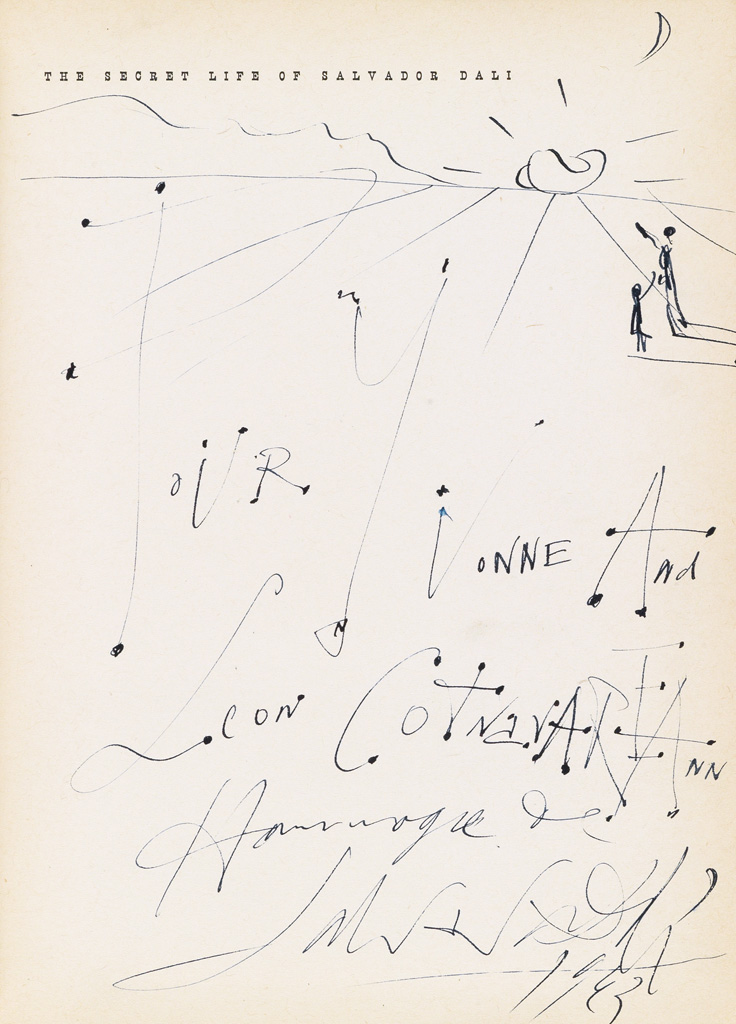 THE SECRET LIFE OF SALVADOR DALI
POUR YVONNE And
Leon
Hommage de
Salvador Dalí
1943